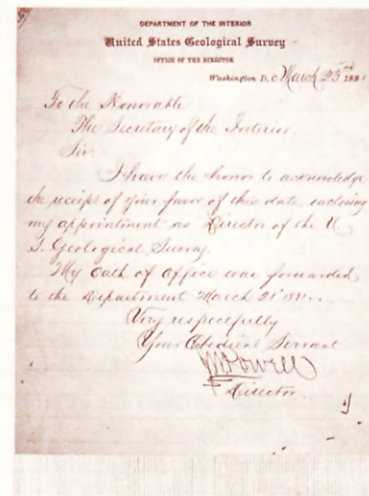 DEPARTMENT OF THE INTERIOR
United States Geological Survey
OFFICE OF THE DIRECTOR
Washington, D.C. March 23rd 1881
To the Honorable
The Secretary of the Interior.
Sir
I have the honor to acknowledge
the receipt of your favor of this date, enclosing
my appointment as Director of the U.
S. Geological Survey.
My Oath of Office was forwarded
to the Department March 21st 1881.
Very respectfully
Your Obedient Servant
J W Powell
Director.